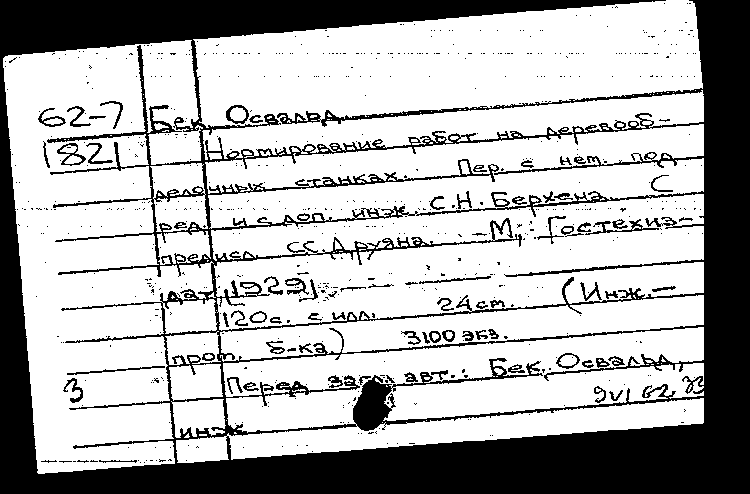 62-7 Бек, Освальд
1821 Нормирование работ на деревооб-
делочных станках. Пер. с нем. под
ред. и с доп. инж. С.Н. Берхена. С
предисл. С.С. Друяна. - М., Гостехиз-
дат, 1929.
120 с. с илл. 24 см. (Инж.-
прот. б-ка.) 3100 экз.
3 Перед загл. авт.: Бек, Освальд,
инж.